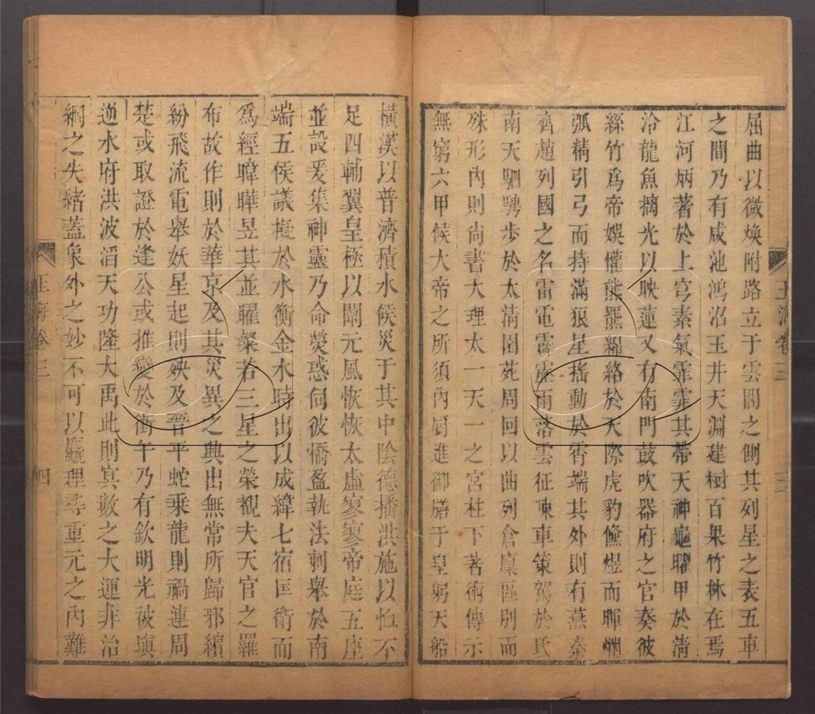 玉海卷三
三
屈曲以微煥附路立于雲閣之側其列星之表五車
之間乃有咸池鴻沼玉井天淵建樹百果竹林在焉
江河炳著於上穹素氣霏霏其帶天神龜曜甲於清
泠龍魚摛光以映蓮又有南門鼓吹器府之官奏彼
絲竹爲帝娛懽熊羆綿絡於天際虎豹儵煜而暉爛
弧精引弓而持滿狼星搖動於霄端其外則有燕秦
齊趙列國之名雷電霹靂雨落雲征陳車策駕於氐
南天駟騁步於太清園苑周回以曲列倉廩區別而
殊形內則尚書大理太一天一之宮柱下著術傳示
無窮六甲候大帝之所須內廚進御膳于皇躬天船
橫漢以普濟積水候災于其中陰德播洪施以恤不
足四輔翼皇極以闡元風恢恢太虛寥寥帝庭五座
並設爰集神靈乃命熒惑伺彼憍盈執法刺舉於南
端五侯議擬於水衡金水時出以成緯七宿匡衛而
爲經暐曄昱其並曜粲若三星之榮覩夫天官之羅
布故作則於華京及其災異之興出無常所歸邪繽
紛飛流電舉妖星起則殃及晉平蛇乘龍則禍連周
楚或取證於逢公或推變於衝午乃有欽明光被填
逆水府洪波滔天功隆大禹此則冥數之大運非治
綱之失緒蓋象外之妙不可以麤理尋重元之內難
玉海卷三
四